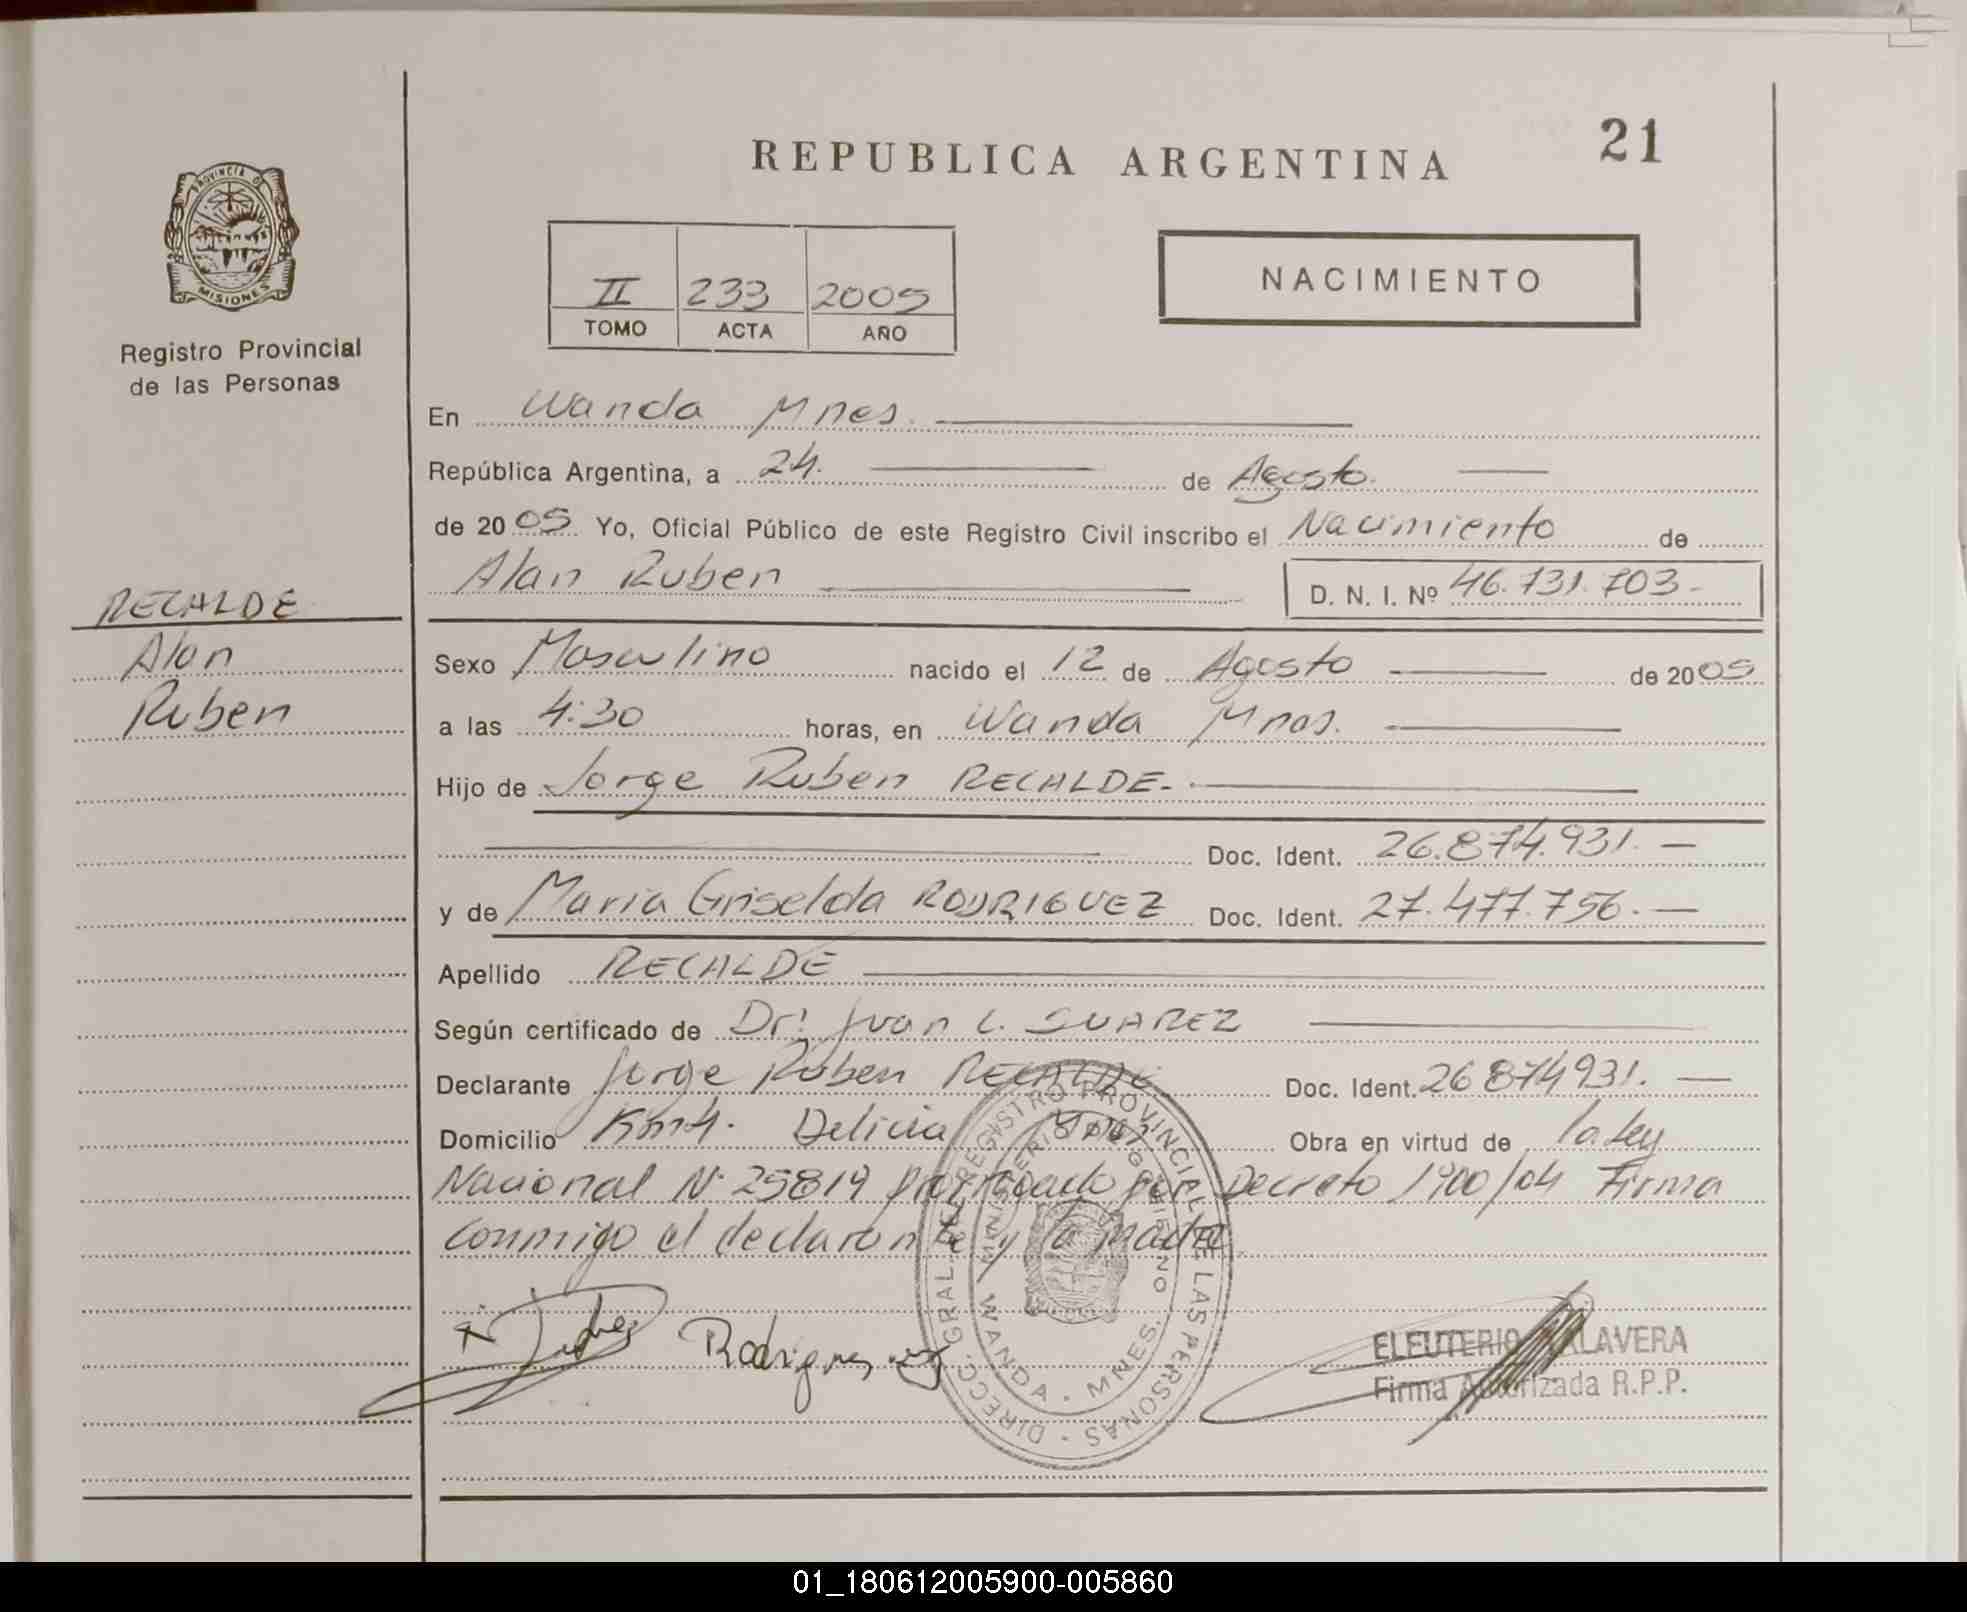 REPUBLICA ARGENTINA
21
PROVINCIA DE
MISIONES
Registro Provincial
de las Personas
II 233 2005
TOMO ACTA AÑO
NACIMIENTO
En Wanda Mnes.
República Argentina, a 24. de Agosto.
de 2005 Yo, Oficial Público de este Registro Civil inscribo el Nacimiento de
Alan Ruben D. N. I. Nº 46.731.703.-
RECALDE
Alan
Ruben
Sexo Masculino nacido el 12 de Agosto de 2005
a las 4:30 horas, en Wanda Mnes.
Hijo de Jorge Ruben RECALDE.
Doc. Ident. 26.874.931.—
y de Maria Griselda RODRIGUEZ Doc. Ident. 27.477.756.—
Apellido RECALDE
Según certificado de Dr: Juan C. SUAREZ
Declarante Jorge Ruben RECALDE Doc. Ident. 26874931.—
Domicilio Km4. Delicia Mnes Obra en virtud de la Ley
Nacional Nº 25819 prorrogado por Decreto 1900/04 Firma
conmigo el declarante y la madre
DIRECC. GRAL. DEL REGISTRO PROVINCIAL DE LAS PERSONAS
MINISTERIO DE GOBIERNO
WANDA - MNES.
Rodrigues
ELEUTERIO TALAVERA
Firma Autorizada R.P.P.
01_180612005900-005860